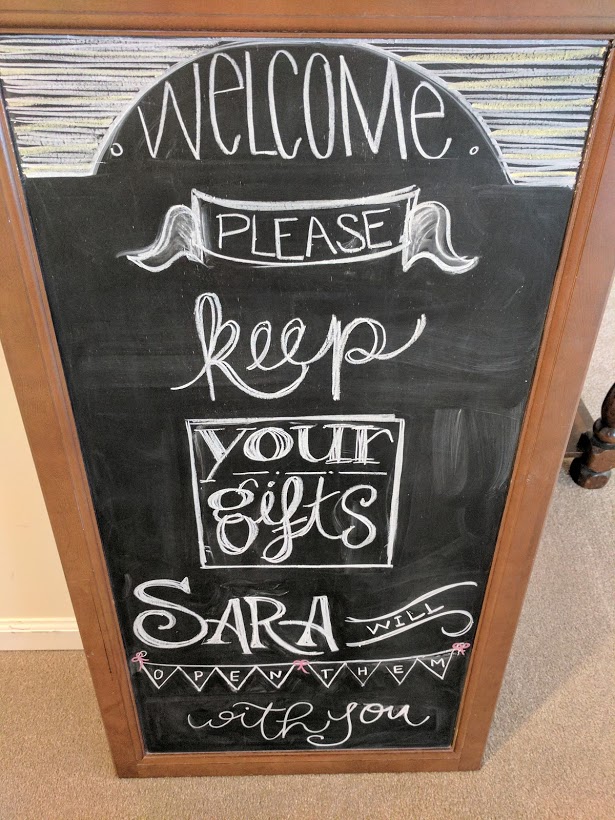 WeLCOMe
PLEASE
keep
your
gifts
SARA WILL
OPEN THEM
with you